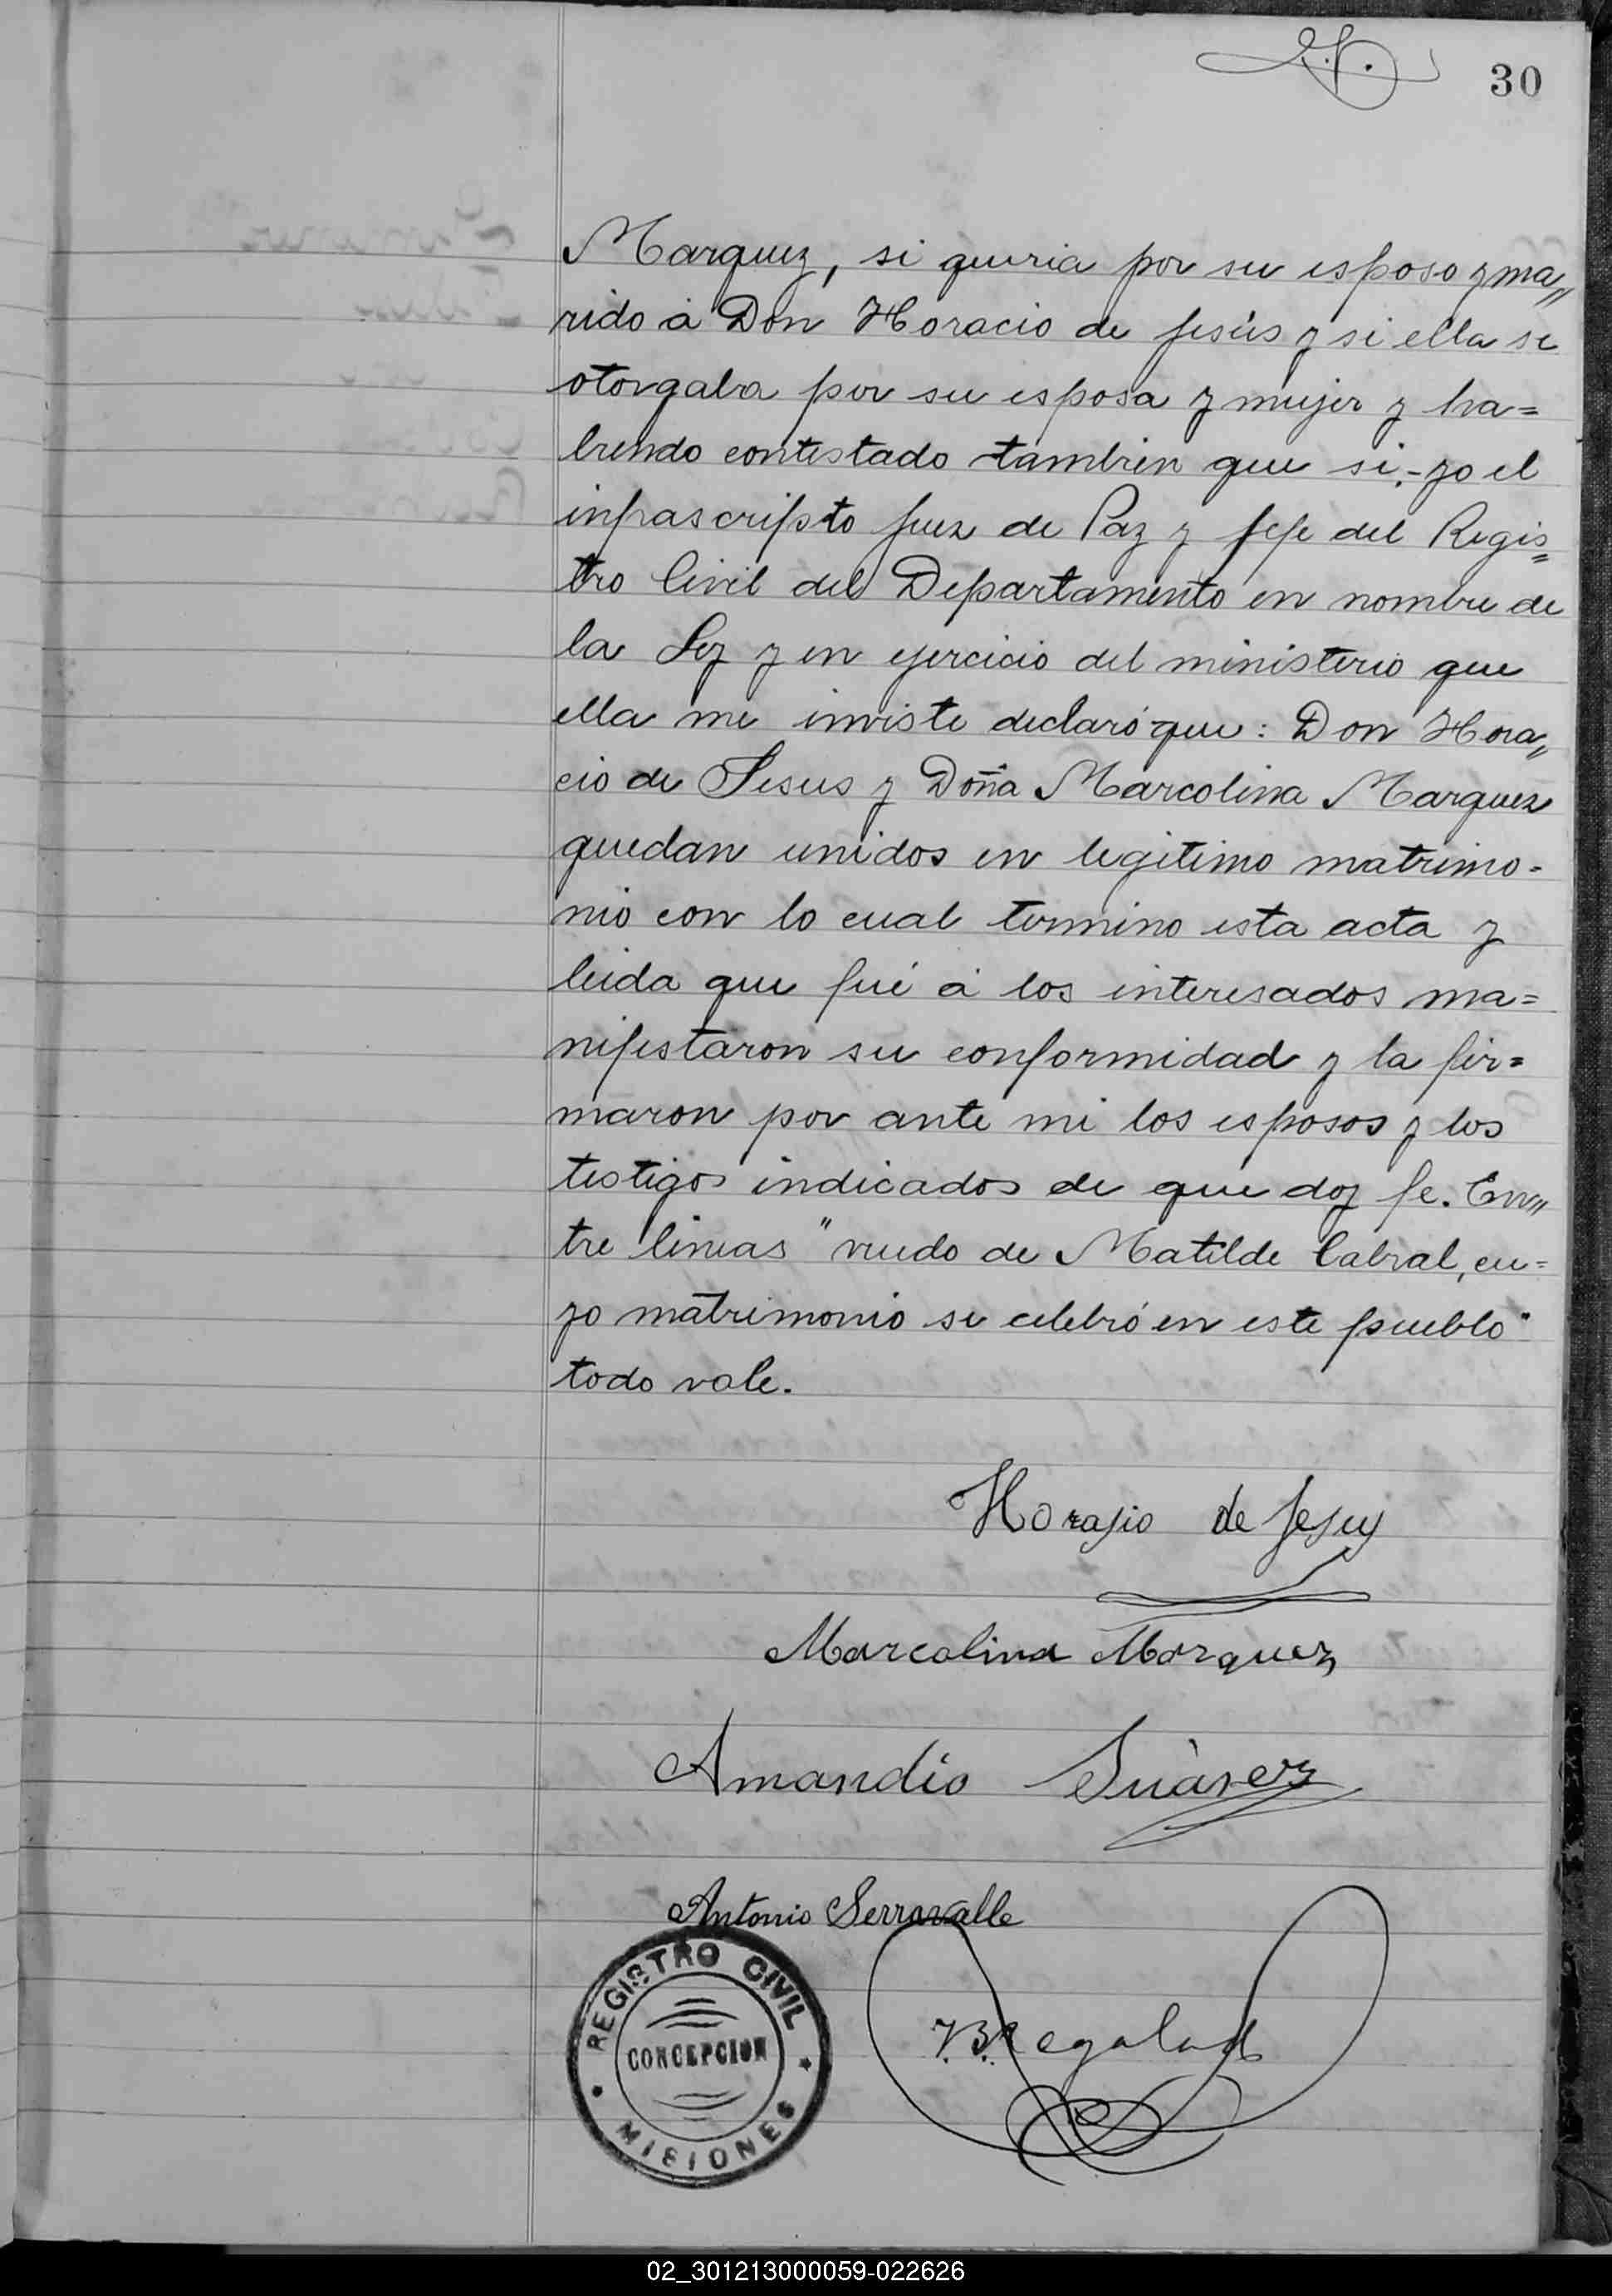 30
Marquez, si queria por su esposo y ma„
rido á Don Horacio de Jesús y si ella se
otorgaba por su esposa y mujer y ha=
biendo contestado tambien que si,- yo el
infrascripto Juez de Paz y Jefe del Regis=
tro Civil del Departamento en nombre de
la Ley y en ejercicio del ministerio que
ella me inviste declaró que: Don Hora„
cio de Jesus y Doña Marcolina Marquez
quedan unidos en legitimo matrimo-
nio con lo cual termino esta acta y
leida que fué á los interesados ma=
nifestaron su conformidad y la fir=
maron por ante mi los esposos y los
testigos indicados de que doy fe. En„
tre lineas "viudo de Matilde Cabral, cu=
yo matrimonio se celebró en este pueblo"
todo vale.
Horasio de Jesus
Marcolina Marquez
Amandio Suàrez
Antonio Serravalle
REGISTRO CIVIL
CONCEPCION
MISIONES
02_301213000059-022626